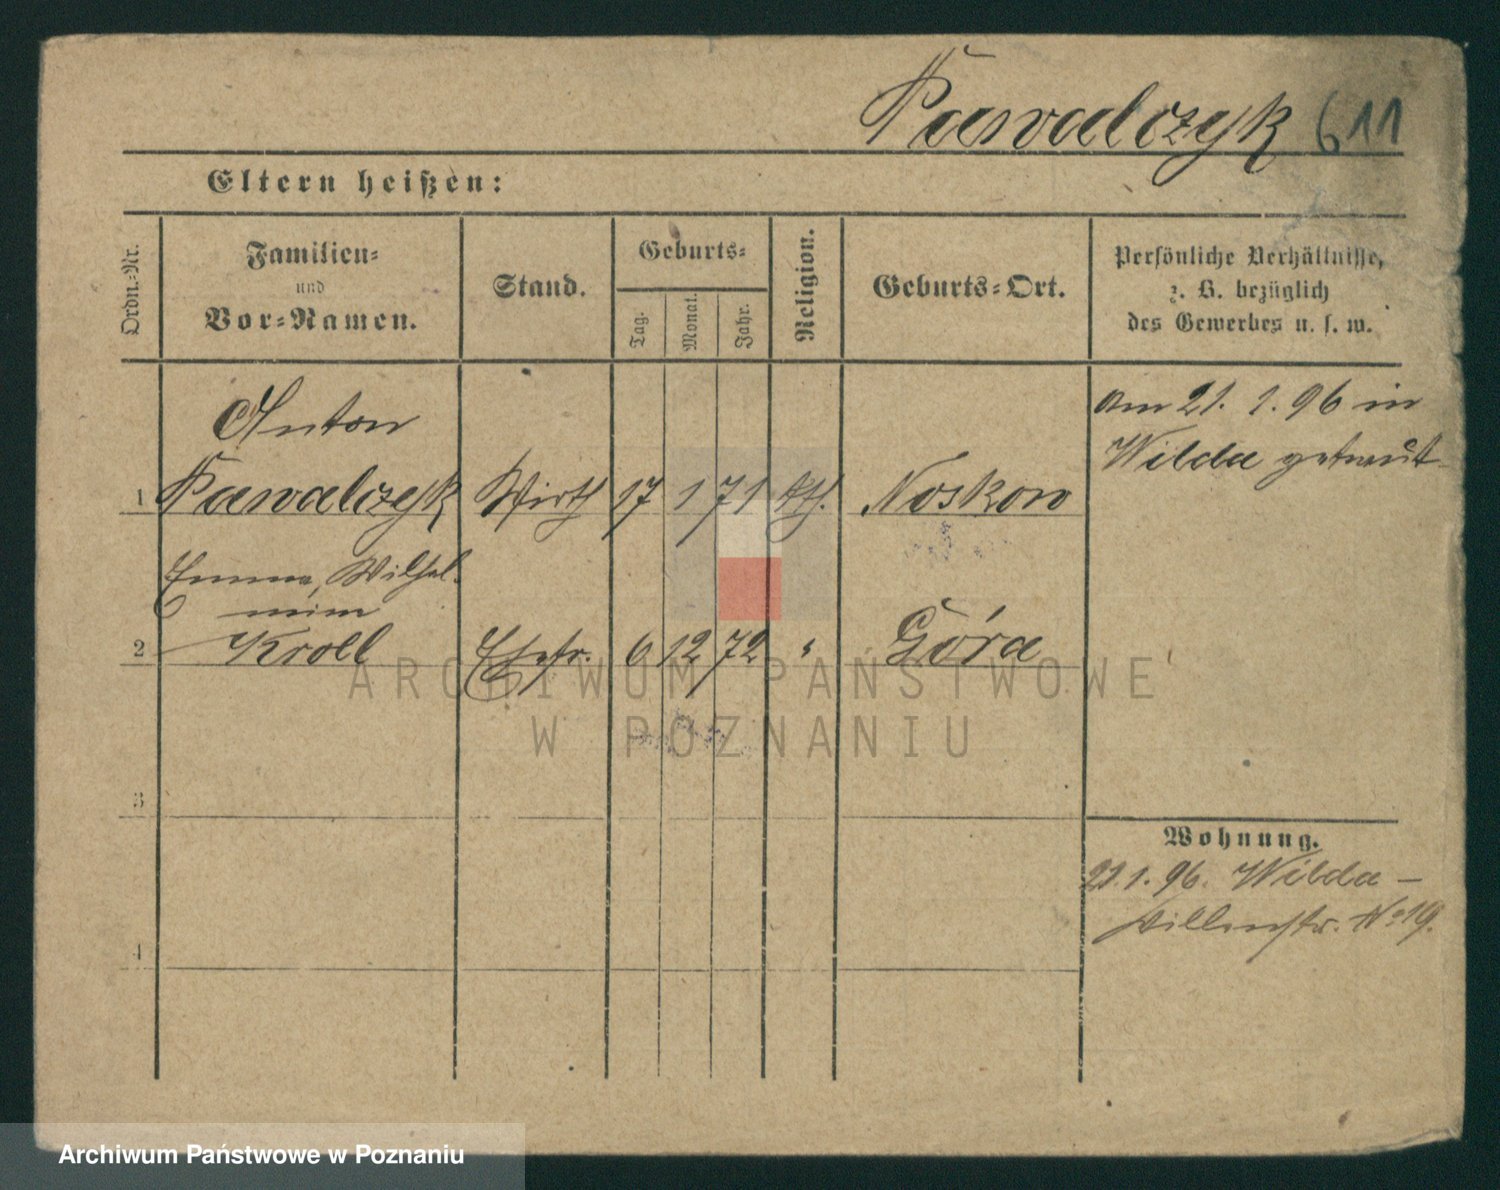 Pawalczyk 611
Eltern heißen:
Ordn.-Nr.
Familien-
und
Vor-Namen.
Stand.
Geburts-
Tag.
Monat.
Jahr.
Religion.
Geburts-Ort.
Persönliche Verhältnisse,
z. B. bezüglich
des Gewerbes u. s. w.
Anton
1 Pawalczyk Wirth 17 1 71 kth. Noskow
am 21. 1. 96 in
Wilda getraut
Emma, Wilhel-
mine
2 Kroll 6 12 72 " Góra
ARCHIWUM PAŃSTWOWE
W POZNANIU
3
Wohnung.
21.1.96. Wilda –
Villenstr. No 19.
4
Archiwum Państwowe w Poznaniu